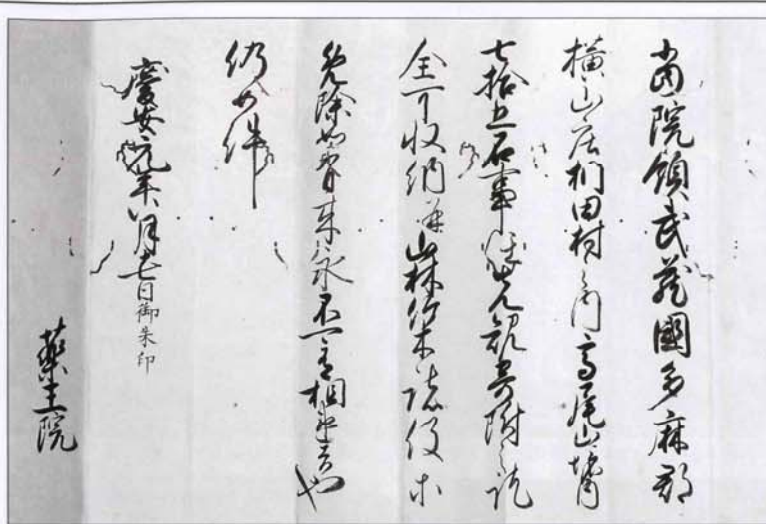 當院領武蔵國多麻郡
横山庄椚田村之内高尾山境内
七拾五石事任先規寄附之訖
全可收納并山林竹木諸役等
免除如有来永不可有相違者也
仍如件
慶安元年八月十七日御朱印
薬王院